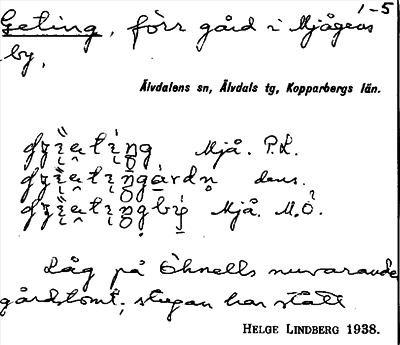 1-5
Geting, förr gård i Mjågens
by,
Älvdalens sn, Älvdals tg, Kopparbergs län.
Mjå. P.L.
dens.
Mjå. M.Ö.
Låg på Öhnells nuvarande
gårdstomt; stugan har stått
HELGE LINDBERG 1938.